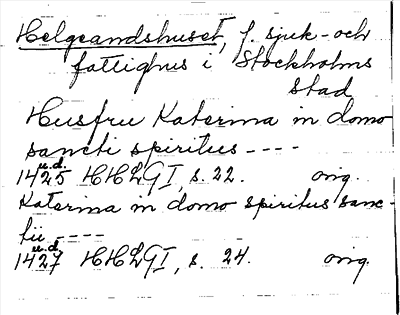 Helgeandshuset, f. sjuk- och
fattighus i Stockholms
stad
Husfru Katerina in domo
sancti spiritus ----
u.d.
1425 HHLGI, s. 22. orig.
Katerina in domo spiritus sanc-
tii ----
u.d.
1427 HHLGI, s. 24. orig.